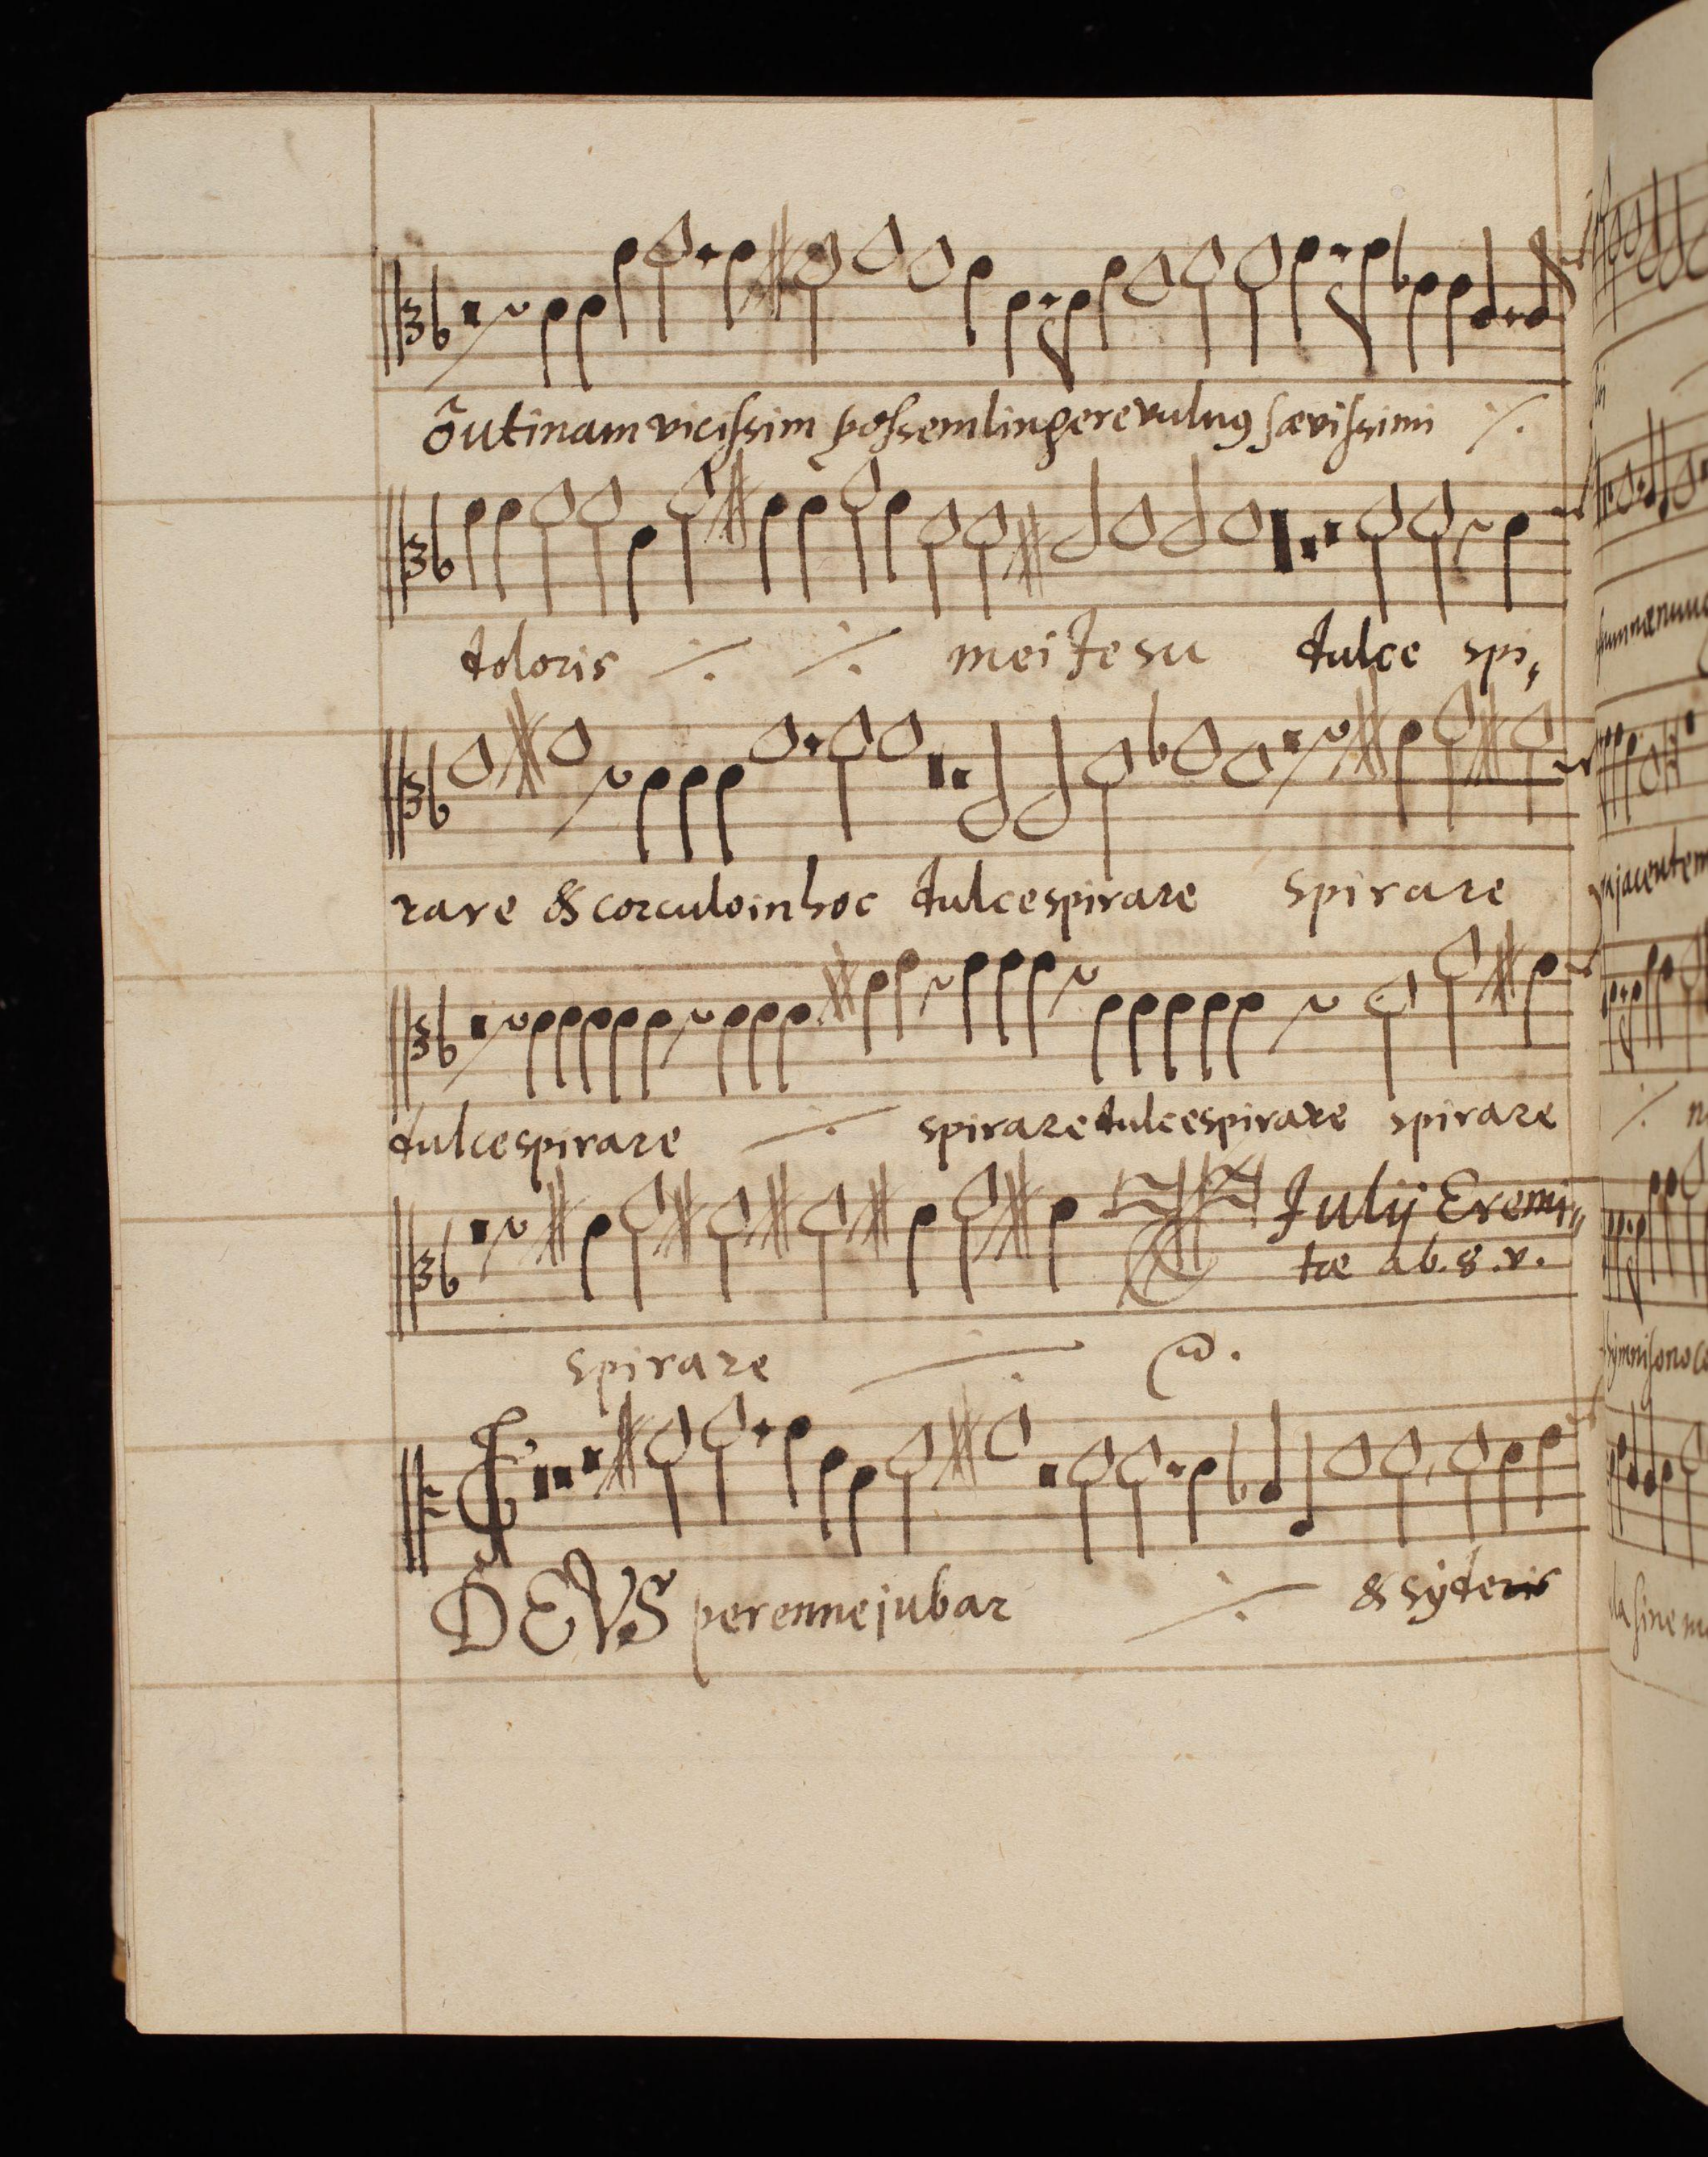 õ utinam vicissim possem lingere vulnus sævissimi ./.
doloris ./. ./. mei Jesu dulce spi„
rare & corculo in hoc dulce spirare spirare
dulce spirare ./. spirare dulce spirare spirare
Julij Eremi„
tæ ab. 8. v.
spirare ./.
DEVS perenne jubar ./. & syderis